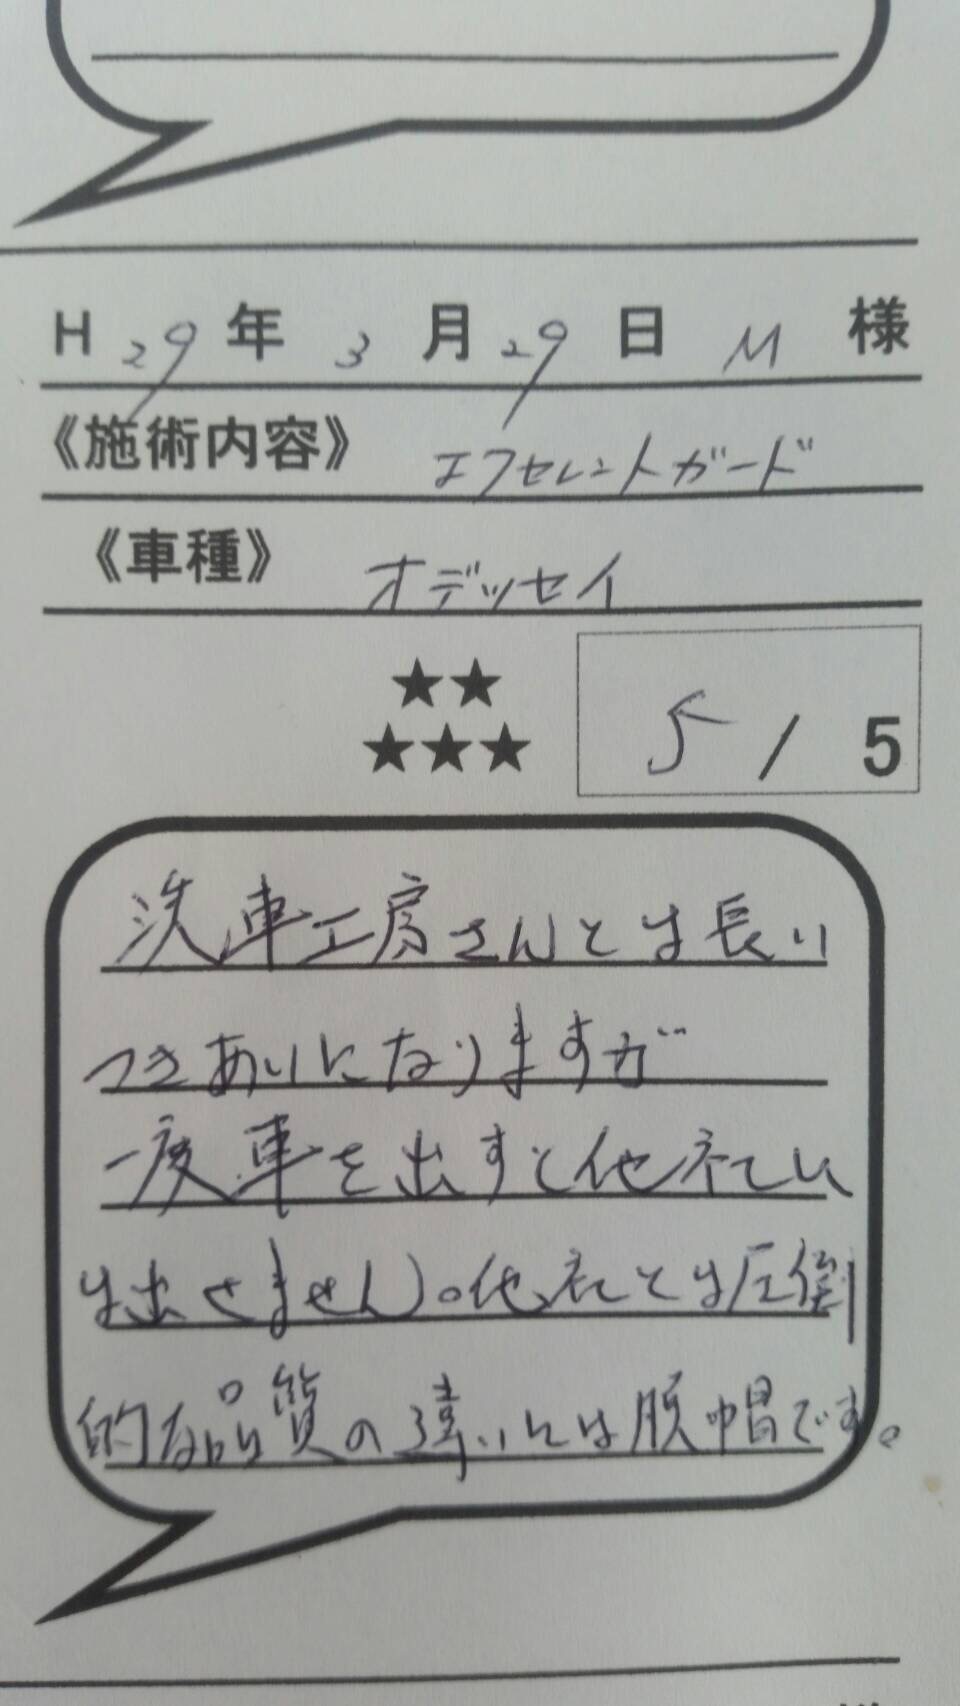 H 29 年 3 月 29 日 M 様
《施術内容》 エクセレントガード
《車種》 オデッセイ
★★
★★★ 5 / 5
洗車工房さんとは長い
つきあいになりますが
一度車を出すと他社に
は出せません。他社とは圧倒
的な品質の違いには脱帽です。